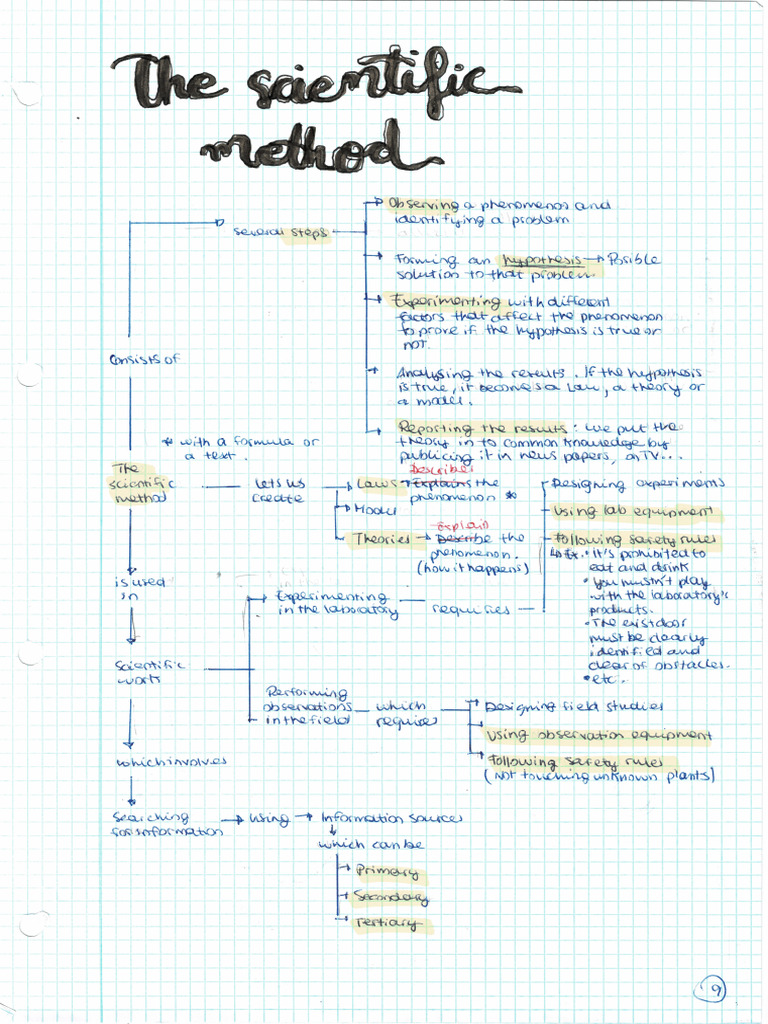 The scientific
method
Observing a phenomenos and
identifying a problem
several steps
Forming an hypothesis → Posible
solution to that problem.
Experimenting with different
factors that affect the phenomenon
to prove if the hypothesis is true or
not.
Consists of
Analysing the results. If the hypothesis
is true, it becomes a Law, a theory or
a model.
Reporting the results: we put the
theory in to common knowledge by
publicing it in news papers, on TV...
* with a formula or
a text.
The
scientific
method
Lets us
create
Laws → Explains the
Describe
phenomenon *
Model
Theories → Describe the
Explain
phenomenon.
(how it happens)
Designing experiments
Using lab equipment
Following safety rules
Ex. • It's prohibited to
eat and drink
• you mustn't play
with the laboratory's
products.
• The exist door
must be clearly
identified and
clear of obstacles.
• etc.
is used
in
Experimenting
in the laboratory
requires
Scientific
work
Performing
observations
in the field
which
requires
Designing field studies
Using observation equipment
Following safety rules
(Not touching unknown plants)
which involves
Searching
for information
→ Using → Information sources
which can be
Primary
Secondary
Tertiary
9